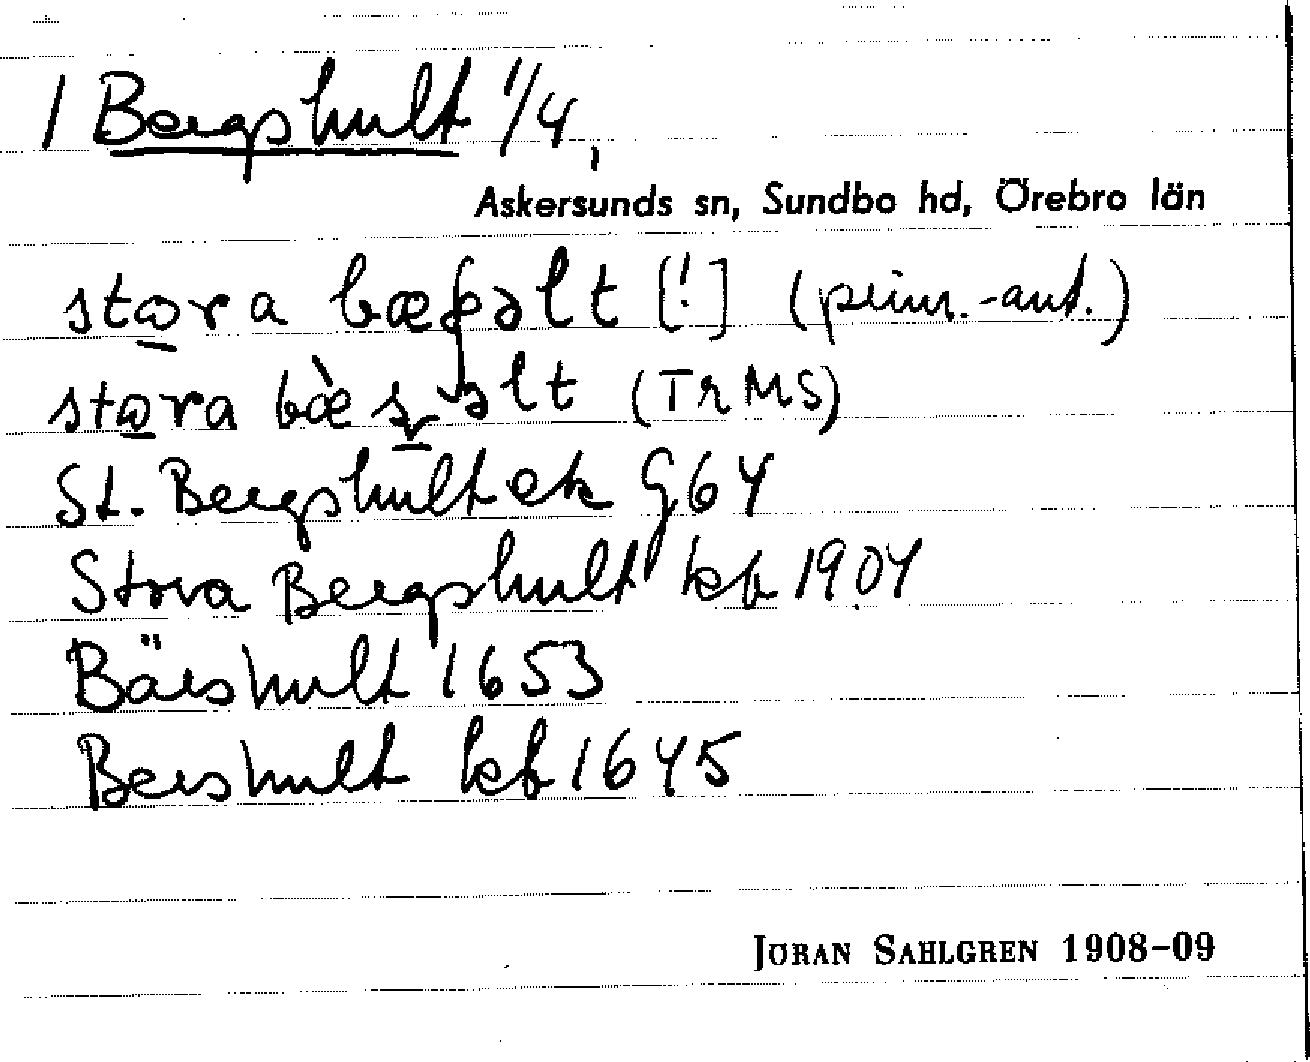 1 Bergshult 1/4,
Askersunds sn, Sundbo hd, Örebro län
stɷra bæʂəlt [!] (prim.-ant.)
stɷra bæ̀ʂəlt (TrMS)
St. Bergshult ek G64
Stora Bergshult kb 1904
Bärshult 1653
Bershult kb 1645
JÖRAN SAHLGREN 1908-09